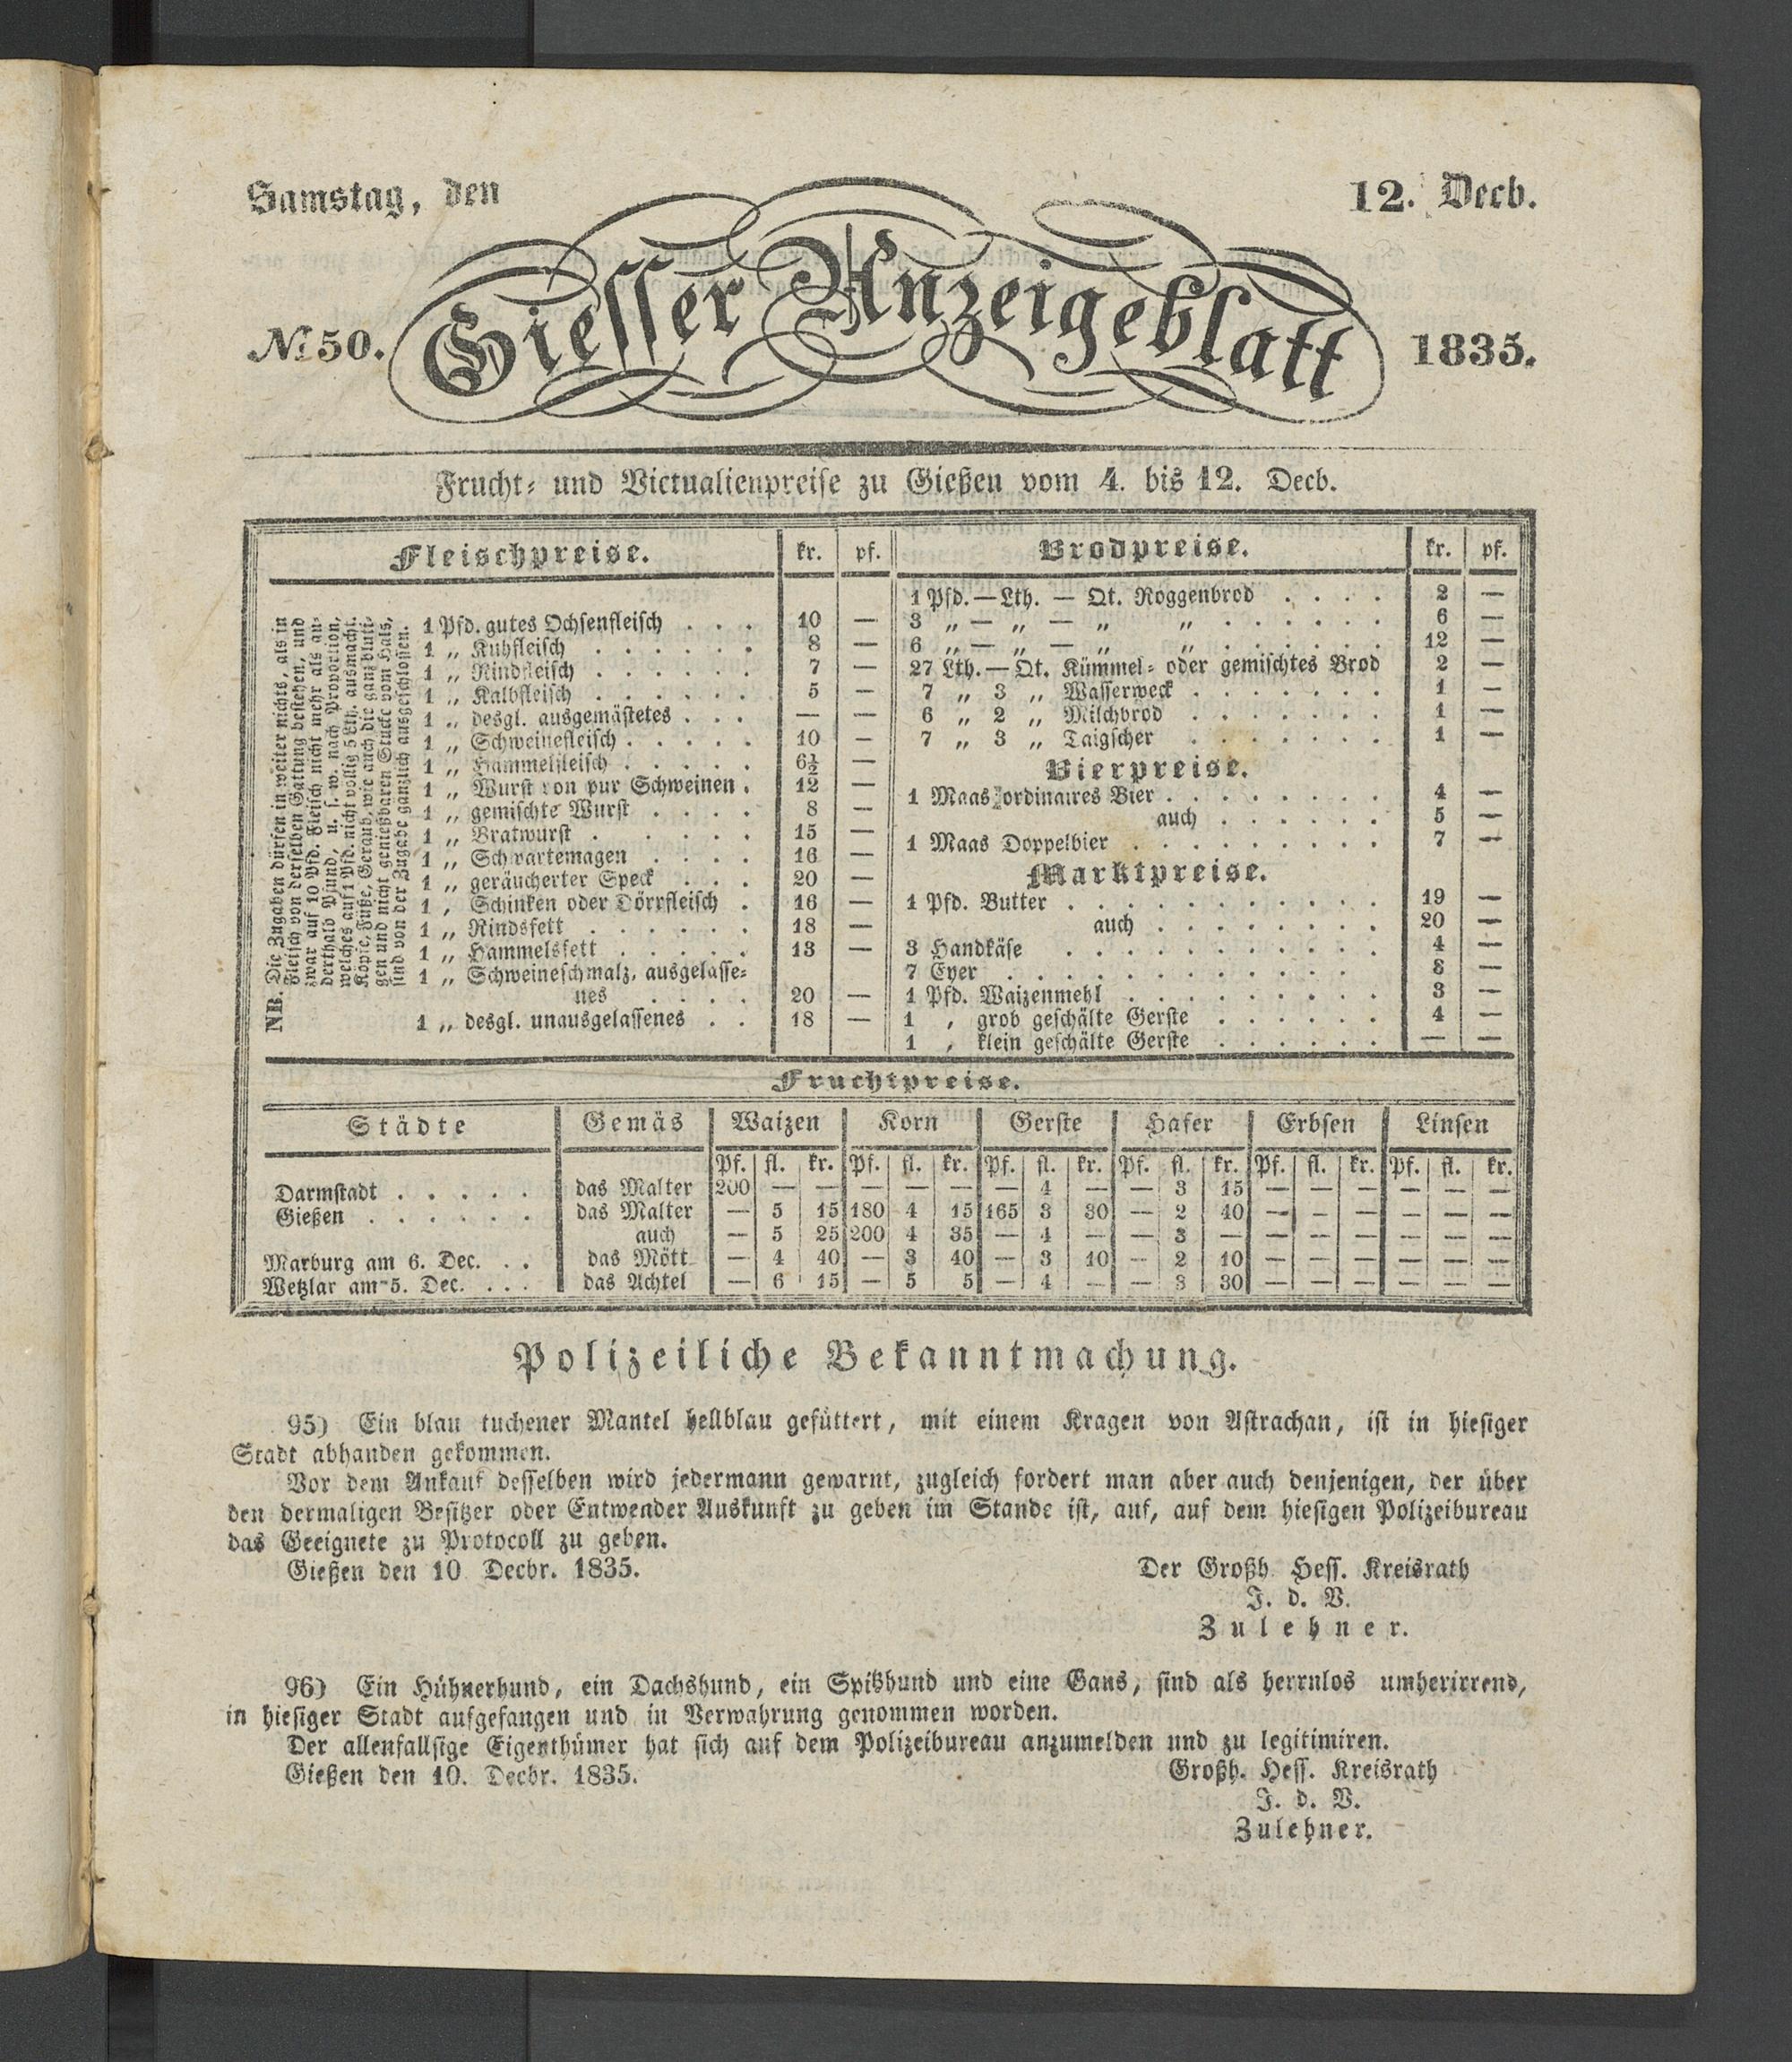 Samstag, den
12. Decb.
Giesser Anzeigeblatt
№ 50.
1835.
Frucht- und Victualienpreise zu Gießen vom 4. bis 12. Decb.
Fleischpreise. kr. pf.
NB. Die Zugaben dürfen in weiter nichts, als in
Fleisch von derselben Gattung bestehen, und
zwar auf 10 Pfd. Fleisch nicht mehr als an-
derthalb Pfund, u. s. w. nach Proportion,
welches auf 1 Pfd. nicht völlig 5 Lth. ausmacht.
Köpfe, Füße, Geraub, wie auch die ganz bluti-
gen und nicht genießbaren Stücke vom Hals,
sind von der Zugabe gänzlich ausgeschlossen.
1 Pfd. gutes Ochsenfleisch . . . 10 —
1 „ Kuhfleisch . . . . . . 8 —
1 „ Rindfleisch . . . . . . 7 —
1 „ Kalbfleisch . . . . . . 5 —
1 „ desgl. ausgemästetes . . . — —
1 „ Schweinefleisch . . . . . 10 —
1 „ Hammelfleisch . . . . . 6½ —
1 „ Wurst von pur Schweinen . 12 —
1 „ gemischte Wurst . . . . 8 —
1 „ Bratwurst . . . . . 15 —
1 „ Schwartemagen . . . . 16 —
1 „ geräucherter Speck . . . 20 —
1 , Schinken oder Dörrfleisch . 16 —
1 „ Rindsfett . . . . . . 18 —
1 „ Hammelsfett . . . . . 13 —
1 „ Schweineschmalz, ausgelasse-
nes . . . . 20 —
1 „ desgl. unausgelassenes . . 18 —
Brodpreise. kr. pf.
1 Pfd. — Lth. — Qt. Roggenbrod . . . . 2 —
3 „ — „ — „ „ . . . . . . 6 —
6 „ — „ — „ „ . . . . . . 12 —
27 Lth. — Qt. Kümmel- oder gemischtes Brod 2 —
7 „ 3 „ Wasserweck . . . . . . . 1 —
6 „ 2 „ Milchbrod . . . . . . . 1 —
7 „ 3 „ Taigscher . . . . . . . 1 —
Bierpreise.
1 Maas ordinaires Bier . . . . . . . . 4 —
auch . . . . . . 5 —
1 Maas Doppelbier . . . . . . . . . 7 —
Marktpreise.
1 Pfd. Butter . . . . . . . . . . . 19 —
auch . . . . . . . . 20 —
3 Handkäse . . . . . . . . . . . 4 —
7 Eyer . . . . . . . . . . . . 8 —
1 Pfd. Waizenmehl . . . . . . . . . 3 —
1 , grob geschälte Gerste . . . . . . 4 —
1 , klein geschälte Gerste . . . . . . — —
Fruchtpreise.
Städte Gemäs Waizen Korn Gerste Hafer Erbsen Linsen
Pf. fl. kr. Pf. fl. kr. Pf. fl. kr. Pf. fl. kr. Pf. fl. kr. Pf. fl. kr.
Darmstadt . . . . . das Malter 200 — — — — — — 4 — — 3 15 — — — — — —
Gießen . . . . . . das Malter — 5 15 180 4 15 165 3 30 — 2 40 — — — — — —
auch — 5 25 200 4 35 — 4 — — 3 — — — — — — —
Marburg am 6. Dec. . . das Mött — 4 40 — 3 40 — 3 10 — 2 10 — — — — — —
Wetzlar am 5. Dec. . . . das Achtel — 6 15 — 5 5 — 4 — — 3 30 — — — — — —
Polizeiliche Bekanntmachung.
95) Ein blau tuchener Mantel hellblau gefüttert, mit einem Kragen von Astrachan, ist in hiesiger
Stadt abhanden gekommen.
Vor dem Ankauf desselben wird jedermann gewarnt, zugleich fordert man aber auch denjenigen, der über
den dermaligen Besitzer oder Entwender Auskunft zu geben im Stande ist, auf, auf dem hiesigen Polizeibureau
das Geeignete zu Protocoll zu geben.
Gießen den 10 Decbr. 1835.
Der Großh Hess. Kreisrath
J. d. V.
Zulehner.
96) Ein Hühnerhund, ein Dachshund, ein Spitzhund und eine Gans, sind als herrnlos umherirrend,
in hiesiger Stadt aufgefangen und in Verwahrung genommen worden.
Der allenfallsige Eigenthümer hat sich auf dem Polizeibureau anzumelden und zu legitimiren.
Gießen den 10. Decbr. 1835.
Großh. Hess. Kreisrath
J. d. V.
Zulehner.